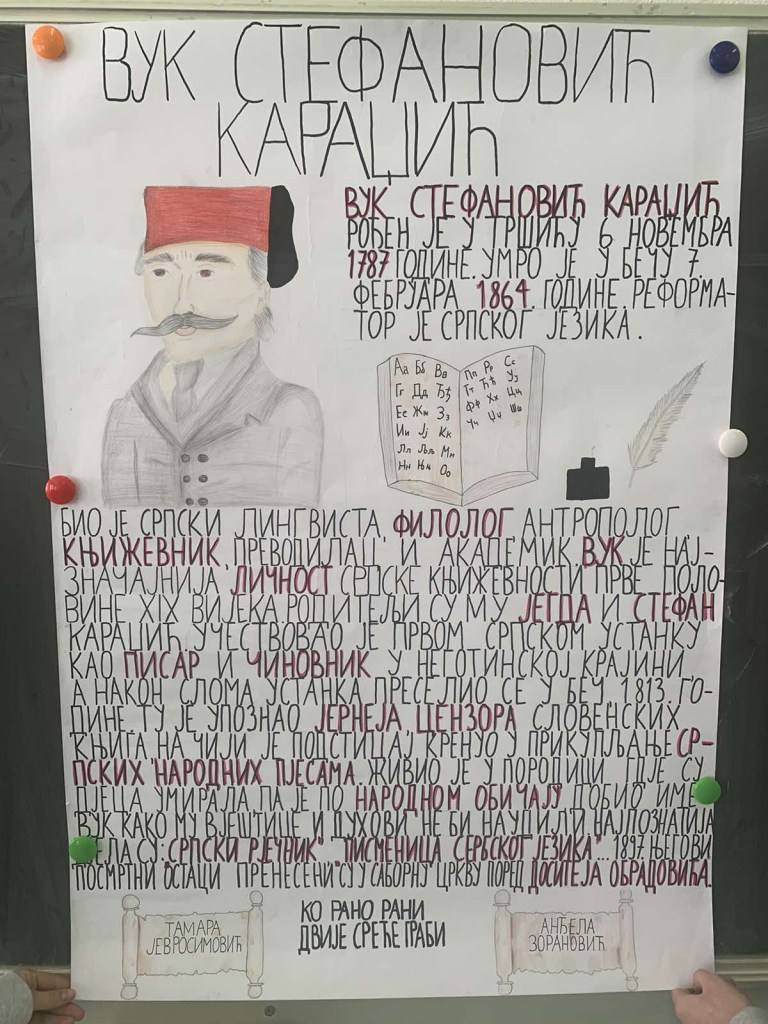 ВУК СТЕФАНОВИЋ
КАРАЏИЋ
ВУК СТЕФАНОВИЋ КАРАЏИЋ
РОЂЕН ЈЕ У ТРШИЋУ 6 НОВЕМБРА
1787 ГОДИНЕ. УМРО ЈЕ У БЕЧУ 7.
ФЕБРУАРА 1864. ГОДИНЕ. РЕФОРМА-
ТОР ЈЕ СРПСКОГ ЈЕЗИКА.
Аа Бб Вв
Гг Дд Ђђ
Ее Жж Зз
Ии Јј Кк
Лл Љљ Мм
Нн Њњ Оо
Пп Рр Сс
Тт Ћћ Уу
Фф Хх Цц
Чч Џџ Шш
БИО ЈЕ СРПСКИ ЛИНГВИСТА, ФИЛОЛОГ, АНТРОПОЛОГ,
КЊИЖЕВНИК, ПРЕВОДИЛАЦ И АКАДЕМИК. ВУК ЈЕ НАЈ-
ЗНАЧАЈНИЈА ЛИЧНОСТ СРПСКЕ КЊИЖЕВНОСТИ ПРВЕ ПОЛО-
ВИНЕ XIX ВИЈЕКА. РОДИТЕЉИ СУ МУ ЈЕГДА И СТЕФАН
КАРАЏИЋ. УЧЕСТВОВАО ЈЕ ПРВОМ СРПСКОМ УСТАНКУ
КАО ПИСАР И ЧИНОВНИК У НЕГОТИНСКОЈ КРАЈИНИ,
А НАКОН СЛОМА УСТАНКА ПРЕСЕЛИО СЕ У БЕЧ, 1813. ГО-
ДИНЕ. ТУ ЈЕ УПОЗНАО ЈЕРНЕЈА, ЦЕНЗОРА СЛОВЕНСКИХ
КЊИГА, НА ЧИЈИ ЈЕ ПОДСТИЦАЈ КРЕНУО У ПРИКУПЉАЊЕ СР-
ПСКИХ НАРОДНИХ ПЈЕСАМА. ЖИВИО ЈЕ У ПОРОДИЦИ ГДЈЕ СУ
ДЈЕЦА УМИРАЛА, ПА ЈЕ ПО НАРОДНОМ ОБИЧАЈУ ДОБИО ИМЕ
ВУК КАКО МУ ВЈЕШТИЦЕ И ДУХОВИ НЕ БИ НАУДИЛИ. НАЈПОЗНАТИЈА
ДЈЕЛА СУ: "СРПСКИ РЈЕЧНИК" "ПИСМЕНИЦА СЕРБСКОГ ЈЕЗИКА"... 1897. ЊЕГОВИ
ПОСМРТНИ ОСТАЦИ ПРЕНЕСЕНИ СУ У САБОРНУ ЦРКВУ ПОРЕД ДОСИТЕЈА ОБРАДОВИЋА.
ТАМАРА
ЈЕВРОСИМОВИЋ
КО РАНО РАНИ
ДВИЈЕ СРЕЋЕ ГРАБИ
АНЂЕЛА
ЗОРАНОВИЋ